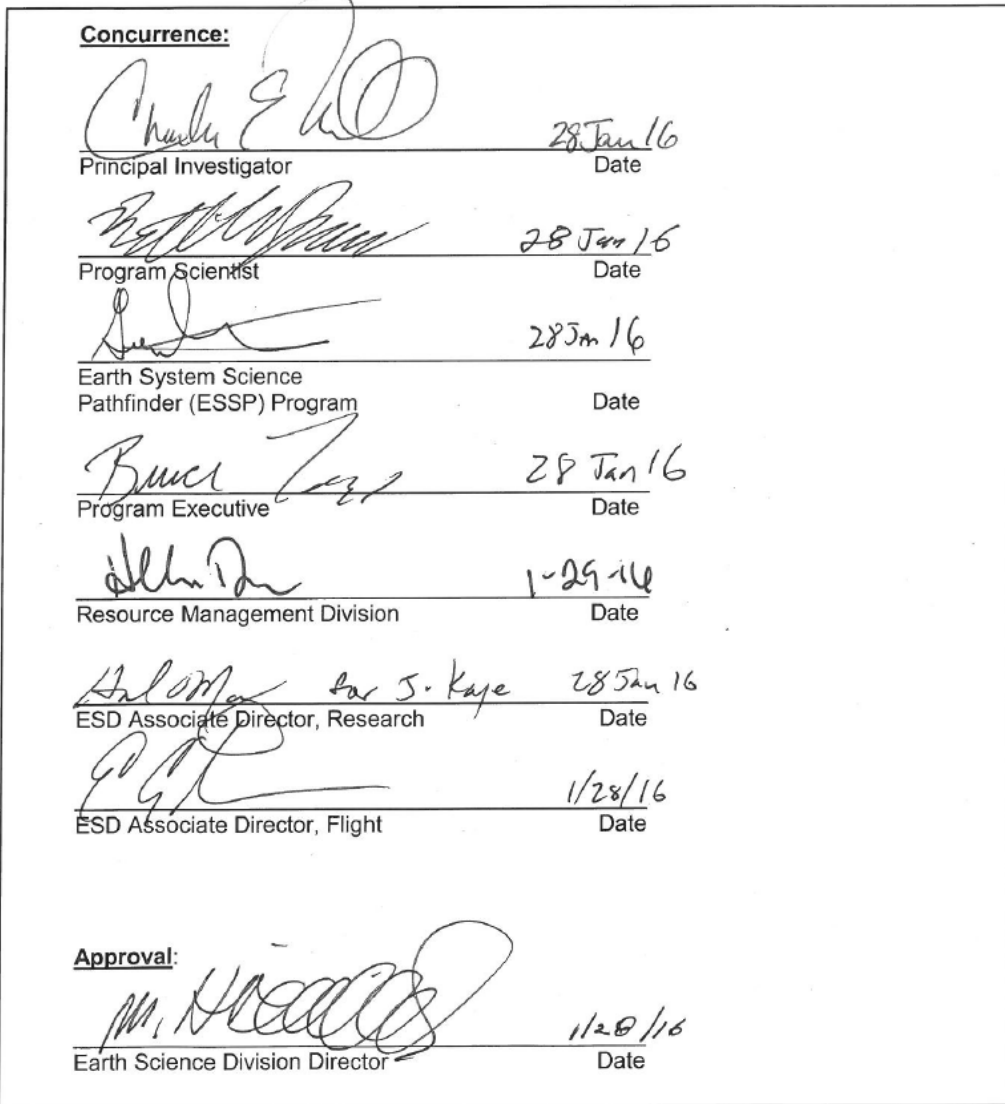 Concurrence:
28 Jan 16
Principal Investigator Date
28 Jan 16
Program Scientist Date
28 Jan 16
Earth System Science
Pathfinder (ESSP) Program Date
Bruce 28 Jan 16
Program Executive Date
1-29-16
Resource Management Division Date
for J. Kaye 28 Jan 16
ESD Associate Director, Research Date
1/28/16
ESD Associate Director, Flight Date
Approval:
M. 1/28/16
Earth Science Division Director Date